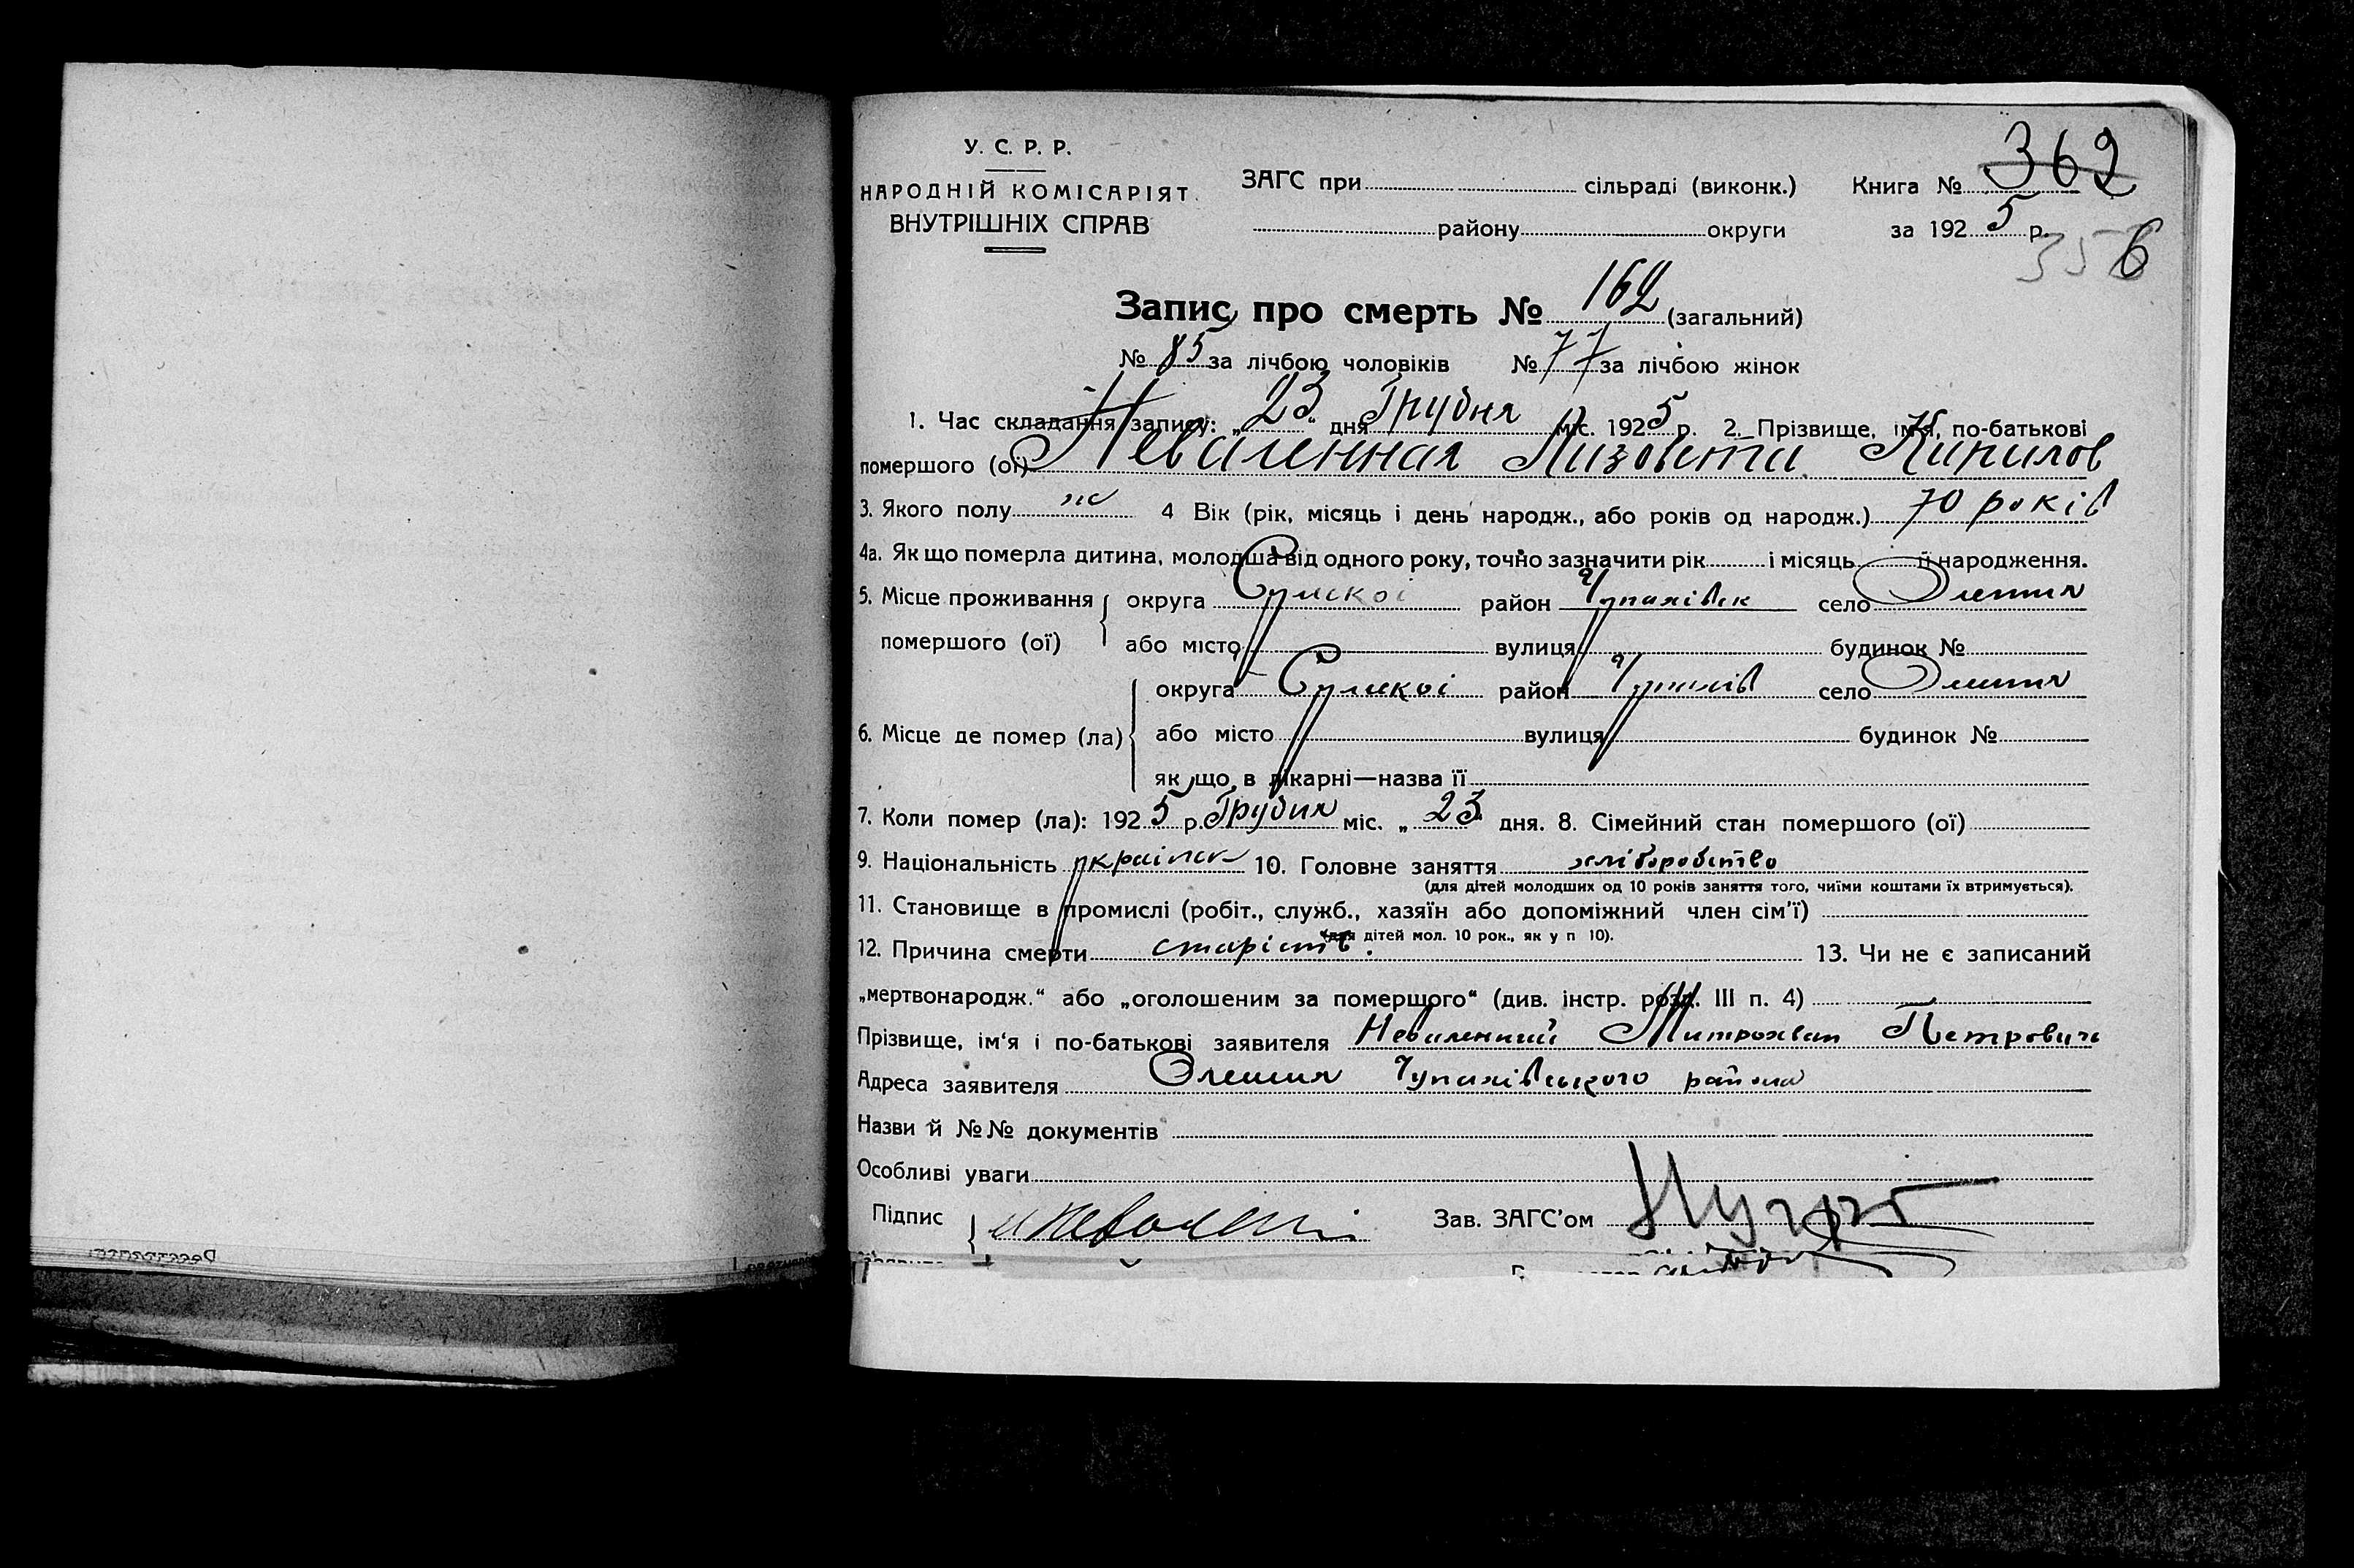 У. С. Р. Р.
НАРОДНІЙ КОМІСАРІЯТ
ВНУТРІШНІХ СПРАВ
ЗАГС при сільраді (виконк.) Книга № 362
району округи за 1925 р.
356
Запис про смерть № 162 (загальний)
№ 85 за лічбою чоловіків № 77 за лічбою жінок
1. Час складання запису: „23“ дня Грудня міс. 1925 р. 2. Прізвище, ім'я, по-батькові
помершого (ої) Неваленная Лизовета Кирилов
3. Якого полу ж 4 Вік (рік, місяць і день народж., або років од народж.) 70 років
4а. Як що померла дитина, молодша від одного року, точно зазначити рік і місяць її народження.
5. Місце проживання округа Сумскої район Чупахівск село Олешня
помершого (ої) або місто вулиця будинок №
округа Сумскої район Чупахів село Олешня
6. Місце де помер (ла) або місто вулиця будинок №
як що, в лікарні—назва її
7. Коли помер (ла): 1925 р. Грудня міс. „23“ дня. 8. Сімейний стан помершого (ої)
9. Національність 10. Головне заняття хліборобство
(для дітей молодших од 10 років заняття того, чиїми коштами їх втримується).
11. Становище в промислі (робіт., служб., хазяїн або допоміжний член сім'ї)
(для дітей мол. 10 рок., як у п 10).
12. Причина смерти старість. 13. Чи не є записаний
„мертвонародж.“ або „оголошеним за померщого“ (див. інстр. розд. III п. 4)
Прізвище, ім'я і по-батькові заявителя Неваленний Митрохван Петрович
Адреса заявителя Олешня Чупахівського района
Назви й №№ документів
Особливі уваги
Підпис Зав. ЗАГС'ом